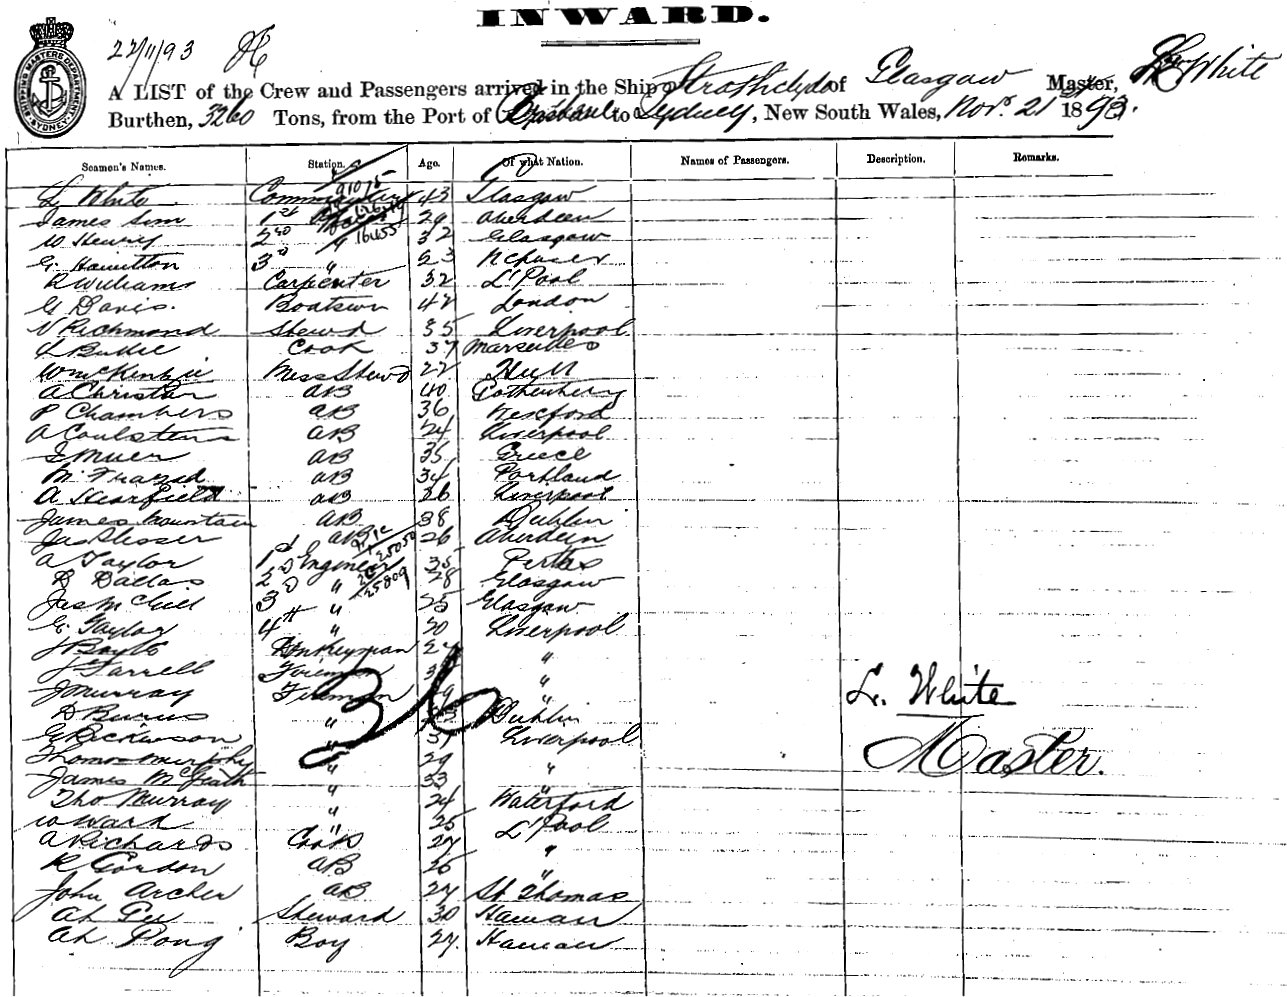 INWARD.
SHIPPING MASTERS DEPARTMENT SYDNEY
22/11/93
A LIST of the Crew and Passengers arrived in the Ship Strathclyde of Glasgow Master, Lr White
Burthen, 3260 Tons, from the Port of Brisbane to Sydney, New South Wales, Novr 21 1893.
Seamen's Names. Station. Age. Of what Nation. Names of Passengers. Description. Remarks.
91015
Lr White 43 Glasgow
James Sim 1st 29 Aberdeen
W Henry 2nd " 16455 32 Glasgow
G. Hamilton 3d " 23
R Williams Carpenter 32 L'Pool
G Davis. Boatswn 42 London
V Richmond Stewd 35 Liverpool
Cook 37 Marseilles
W McKenzie Mess Stewd 22 Hull
A Christian AB 40 Gothenberg
P Chambers AB 36 Wexford
A Coulstens AB 24 Liverpool
AB 35 Greece
AB 34 Portland
A Hearfield AB 26 Liverpool
James Mountain AB 38 Dublin
Jas Slesser AB 26 Aberdeen
A Taylor 1st Engineer 25050 35
D Dallas 2d " 25809 28 Glasgow
Jas 3d " 25 Glasgow
G. Taylor 4th " 20 Liverpool
J Boyle Donkeyman "
J Farrell Fireman "
J Murray Fireman "
D Burns " Dublin
G Dickinson " Liverpool
Thomas Murphy " 29 "
James McGrath " 33 "
Tho Murray " 24 Waterford
W Ward " 25 L'Pool
A Richards Cook 27 "
R Gordon AB 25 "
John Archer AB 27 St Thomas
Ah Steward 30 Hainan
Ah Pong Boy 27. Hainan
36
Lr. White
Master.